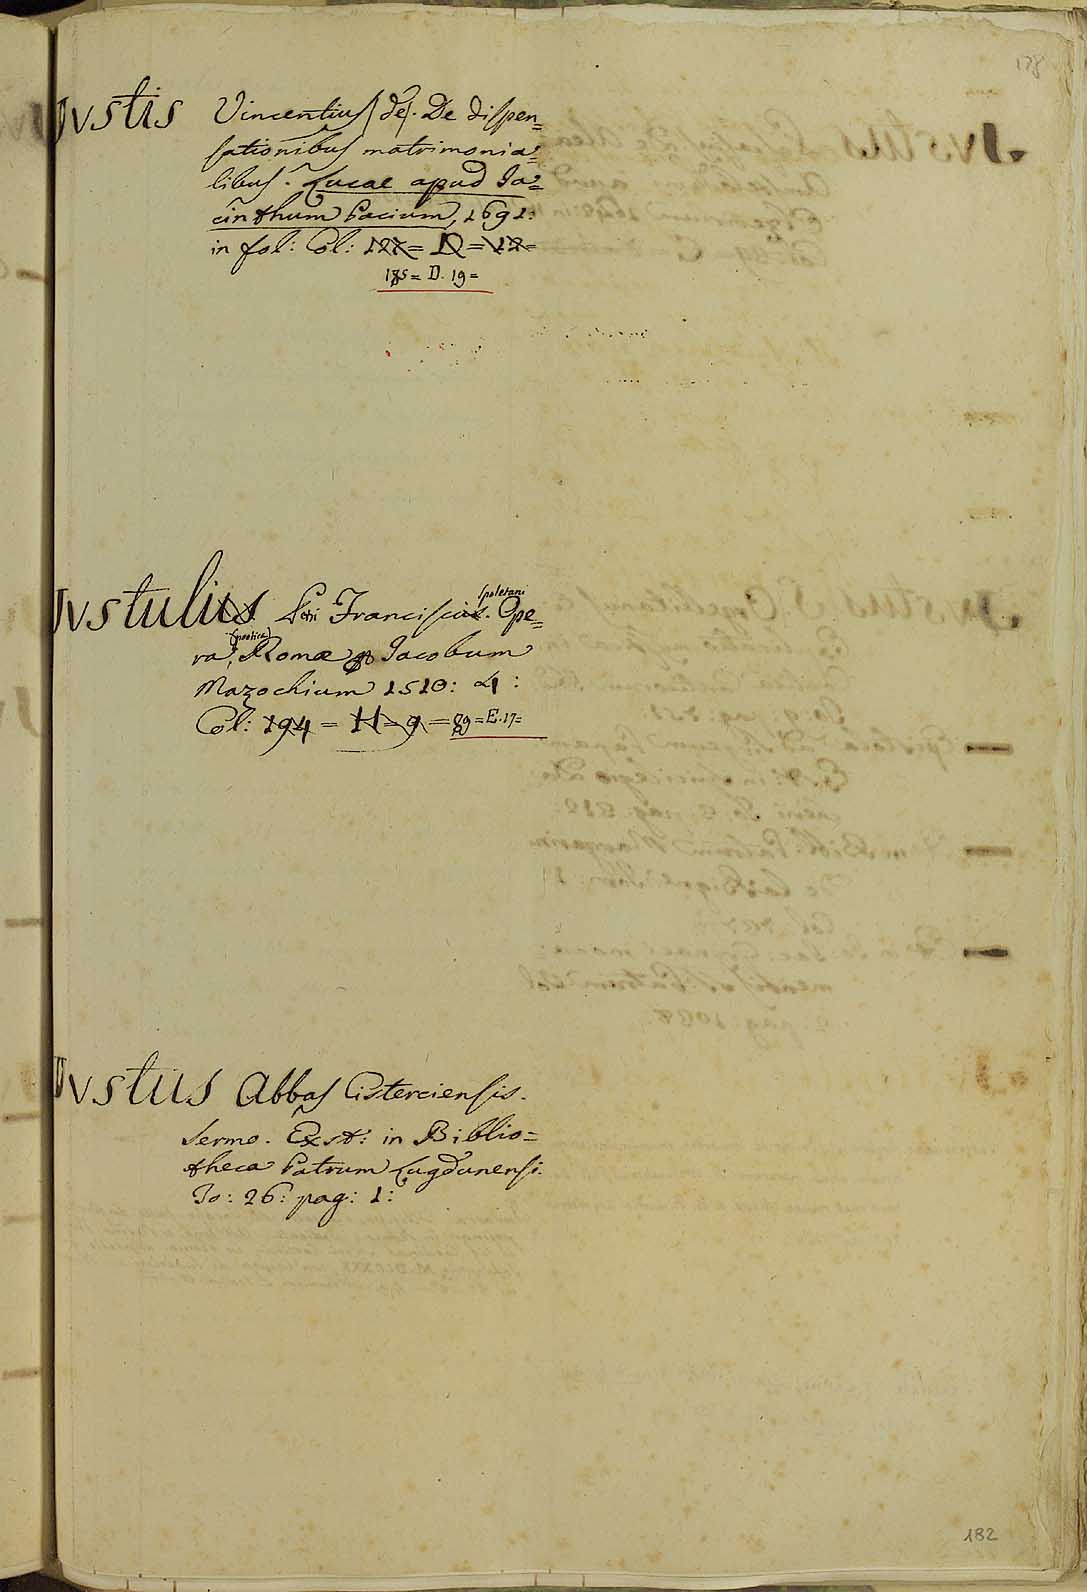 178
IVSTIS Vincentius (de). De dispen=
sationibus matrimonia=
libus. Lucae apud Ja=
cinthum Pacium, 1691:
in fol: Col: 127= D =12=
185= D. 19=
IVSTULIUS Petri Francisci Spoletani. Ope=
ra, (poetica) Romæ Jacobum
Mazochium 1510: 4:
Col: 194 = H = 9 = 89=E.17=
IVSTUS Abbas Cisterciensis.
Sermo. Exst: in Biblio=
theca Patrum Lugdunensi.
To: 26: pag: 1:
182